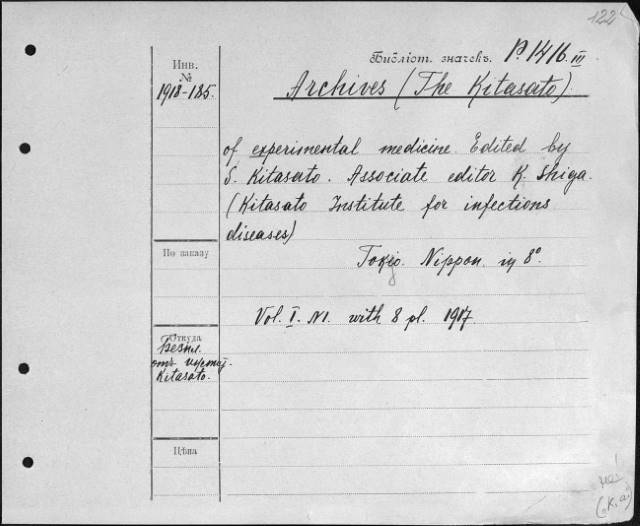 122
Инв.
№
1918-185.
Библіот. значекъ. P.1416.III
Archives (The Kitasato).
of experimental medicine. Edited by
S. Kitasato. Associate editor K. Shiga.
(Kitasato Institute for infections
diseases)
По заказу
Tokjo. Nippon. in 8°.
Vol. I. N1. with 8 pl. 1917.
Откуда
Безпл.
отъ
Kitasato.
Цѣна
(„K, a")